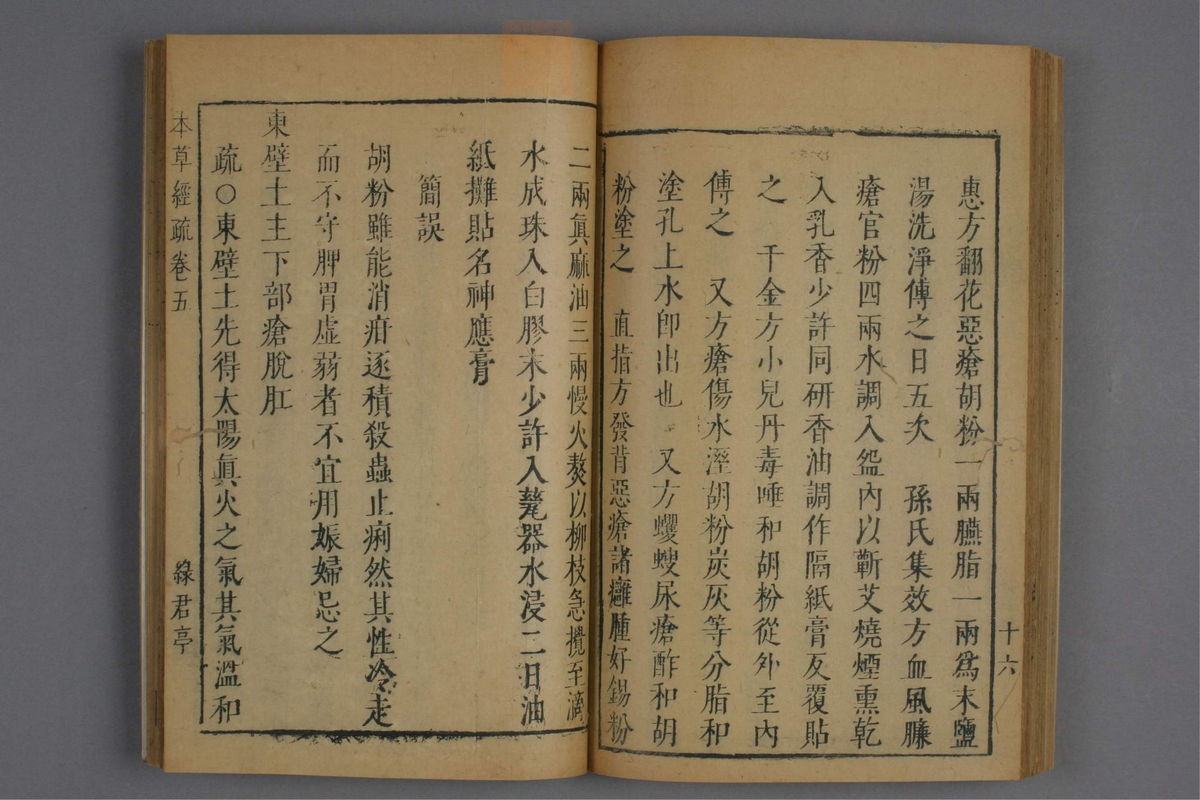 十六
惠方翻花惡瘡胡粉一兩臙脂一兩爲末鹽
湯洗淨傅之日五次　孫氏集效方血風臁
瘡官粉四兩水調入盌內以蘄艾燒煙熏乾
入乳香少許同研香油調作隔紙膏反覆貼
之　千金方小兒丹毒唾和胡粉從外至內
傅之　又方瘡傷水溼胡粉炭灰等分脂和
塗孔上水卽出也　又方蠼螋尿瘡酢和胡
粉塗之　直指方發背惡瘡諸癰腫好錫粉
二兩眞麻油三兩慢火熬以柳枝急攪至滴
水成珠入白膠末少許入甆器水浸二日油
紙攤貼名神應膏
簡誤
胡粉雖能消疳逐積殺蟲止痢然其性冷走
而不守脾胃虛弱者不宜用娠婦忌之
東壁土主下部瘡脫肛
疏○東壁土先得太陽眞火之氣其氣溫和
本草經疏卷五　綠君亭